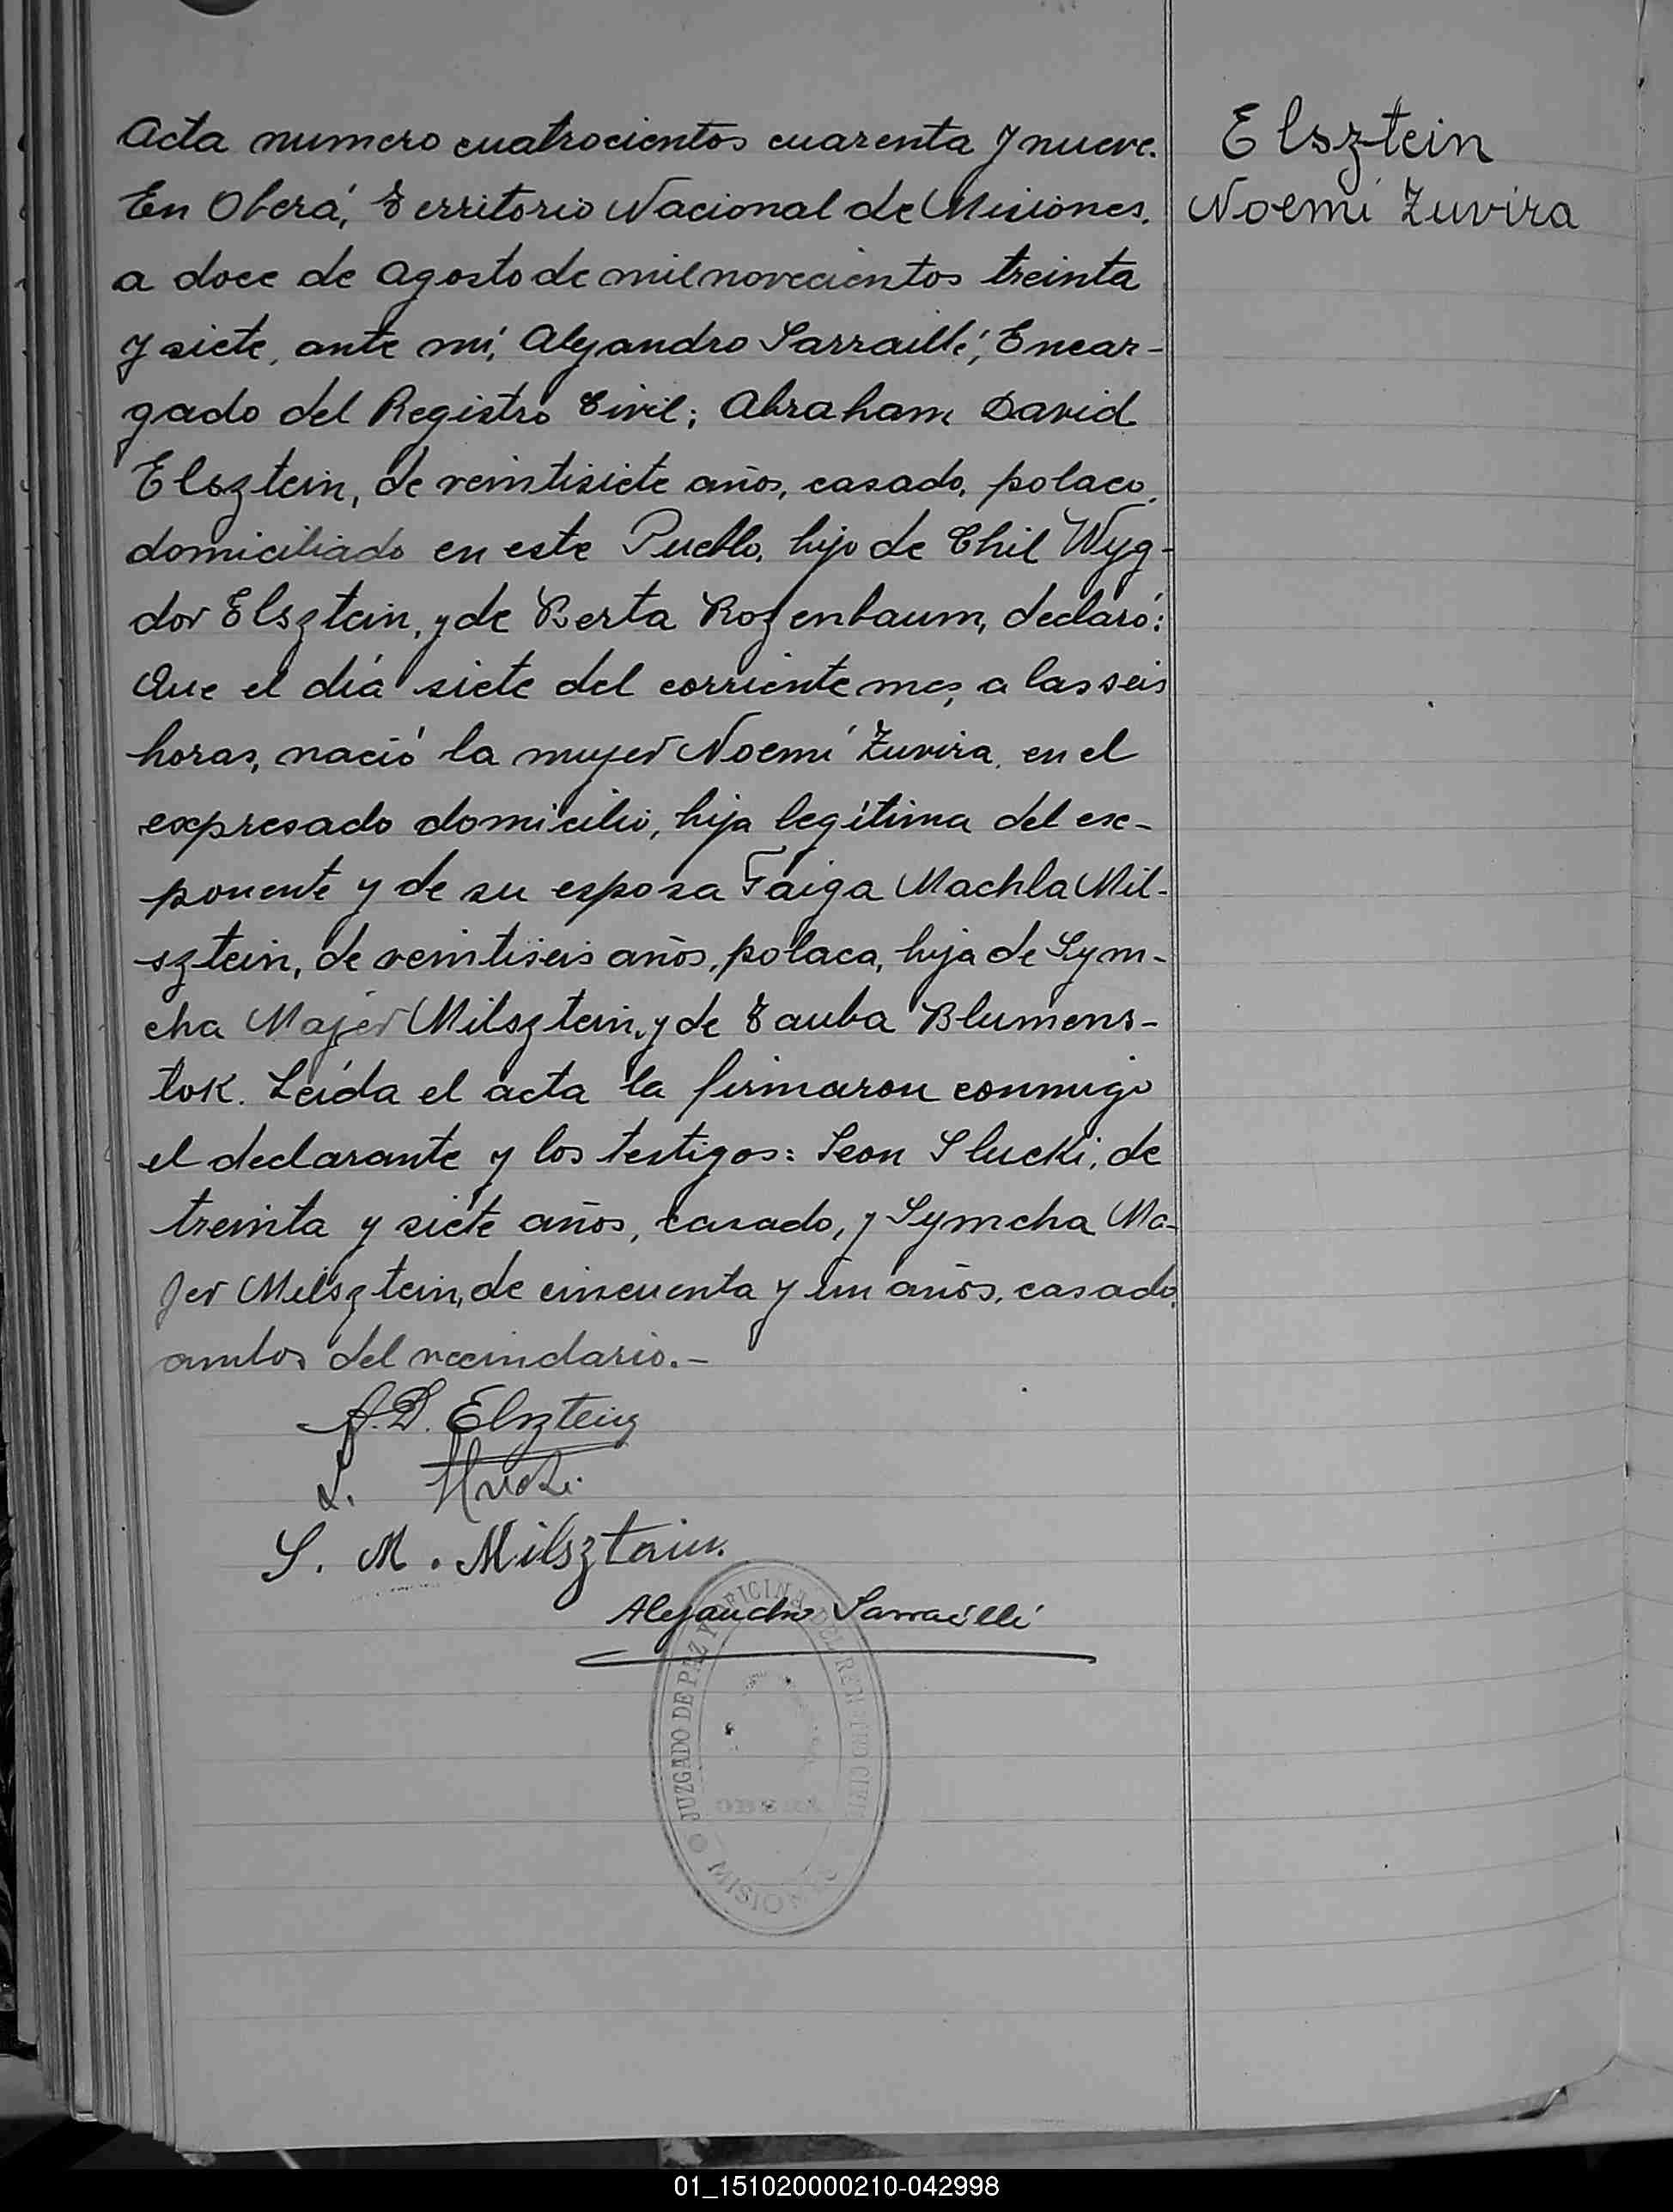 Acta numero cuatrocientos cuarenta y nueve.
En Oberá, Territorio Nacional de Misiones,
a doce de Agosto de mil novecientos treinta
y siete, ante mi, Alejandro Sarraillé, Encar-
gado del Registro Civil; Abraham David
Elsztein, de veintisiete años, casado, polaco,
domiciliado en este Pueblo, hijo de Chil Wyg-
dor Elsztein, y de Berta Rozenbaum, declaró:
Que el día siete del corriente mes, a las seis
horas, nació la mujer Noemí Zuvira, en el
expresado domicilio, hija legítima del ex-
ponente y de su esposa Faiga Machla Mil-
sztein, de veintiseis años, polaca, hija de Sym-
cha Majer Milsztein, y de Tauba Blumens-
tok. Leída el acta la firmaron conmigo
el declarante y los testigos: Leon Slucki, de
treinta y siete años, casado, y Symcha Ma-
jer Milsztein, de cincuenta y un años, casado,
ambos del vecindario.-
Elsztein
Noemí Zuvira
A.D. Elsztein
L. Slucki
S. M. Milsztain.
Alejandro Sarraillé
JUZGADO DE PAZ Y OFICINA DEL REGISTRO CIVIL
OBERA
MISIONES
01_151020000210-042998